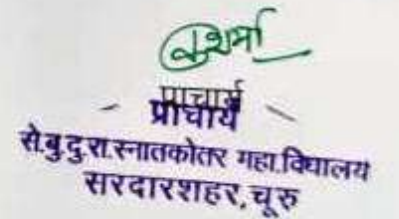 प्राचार्य
प्राचार्य
से.बु.दु.रा.स्नातकोतर महा.विद्यालय
सरदारशहर,चूरु